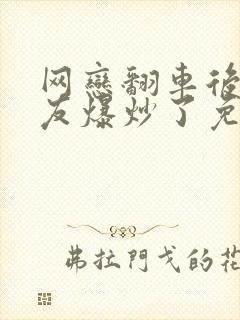 网戀翻車後
友爆炒了免
弗拉門戈的花